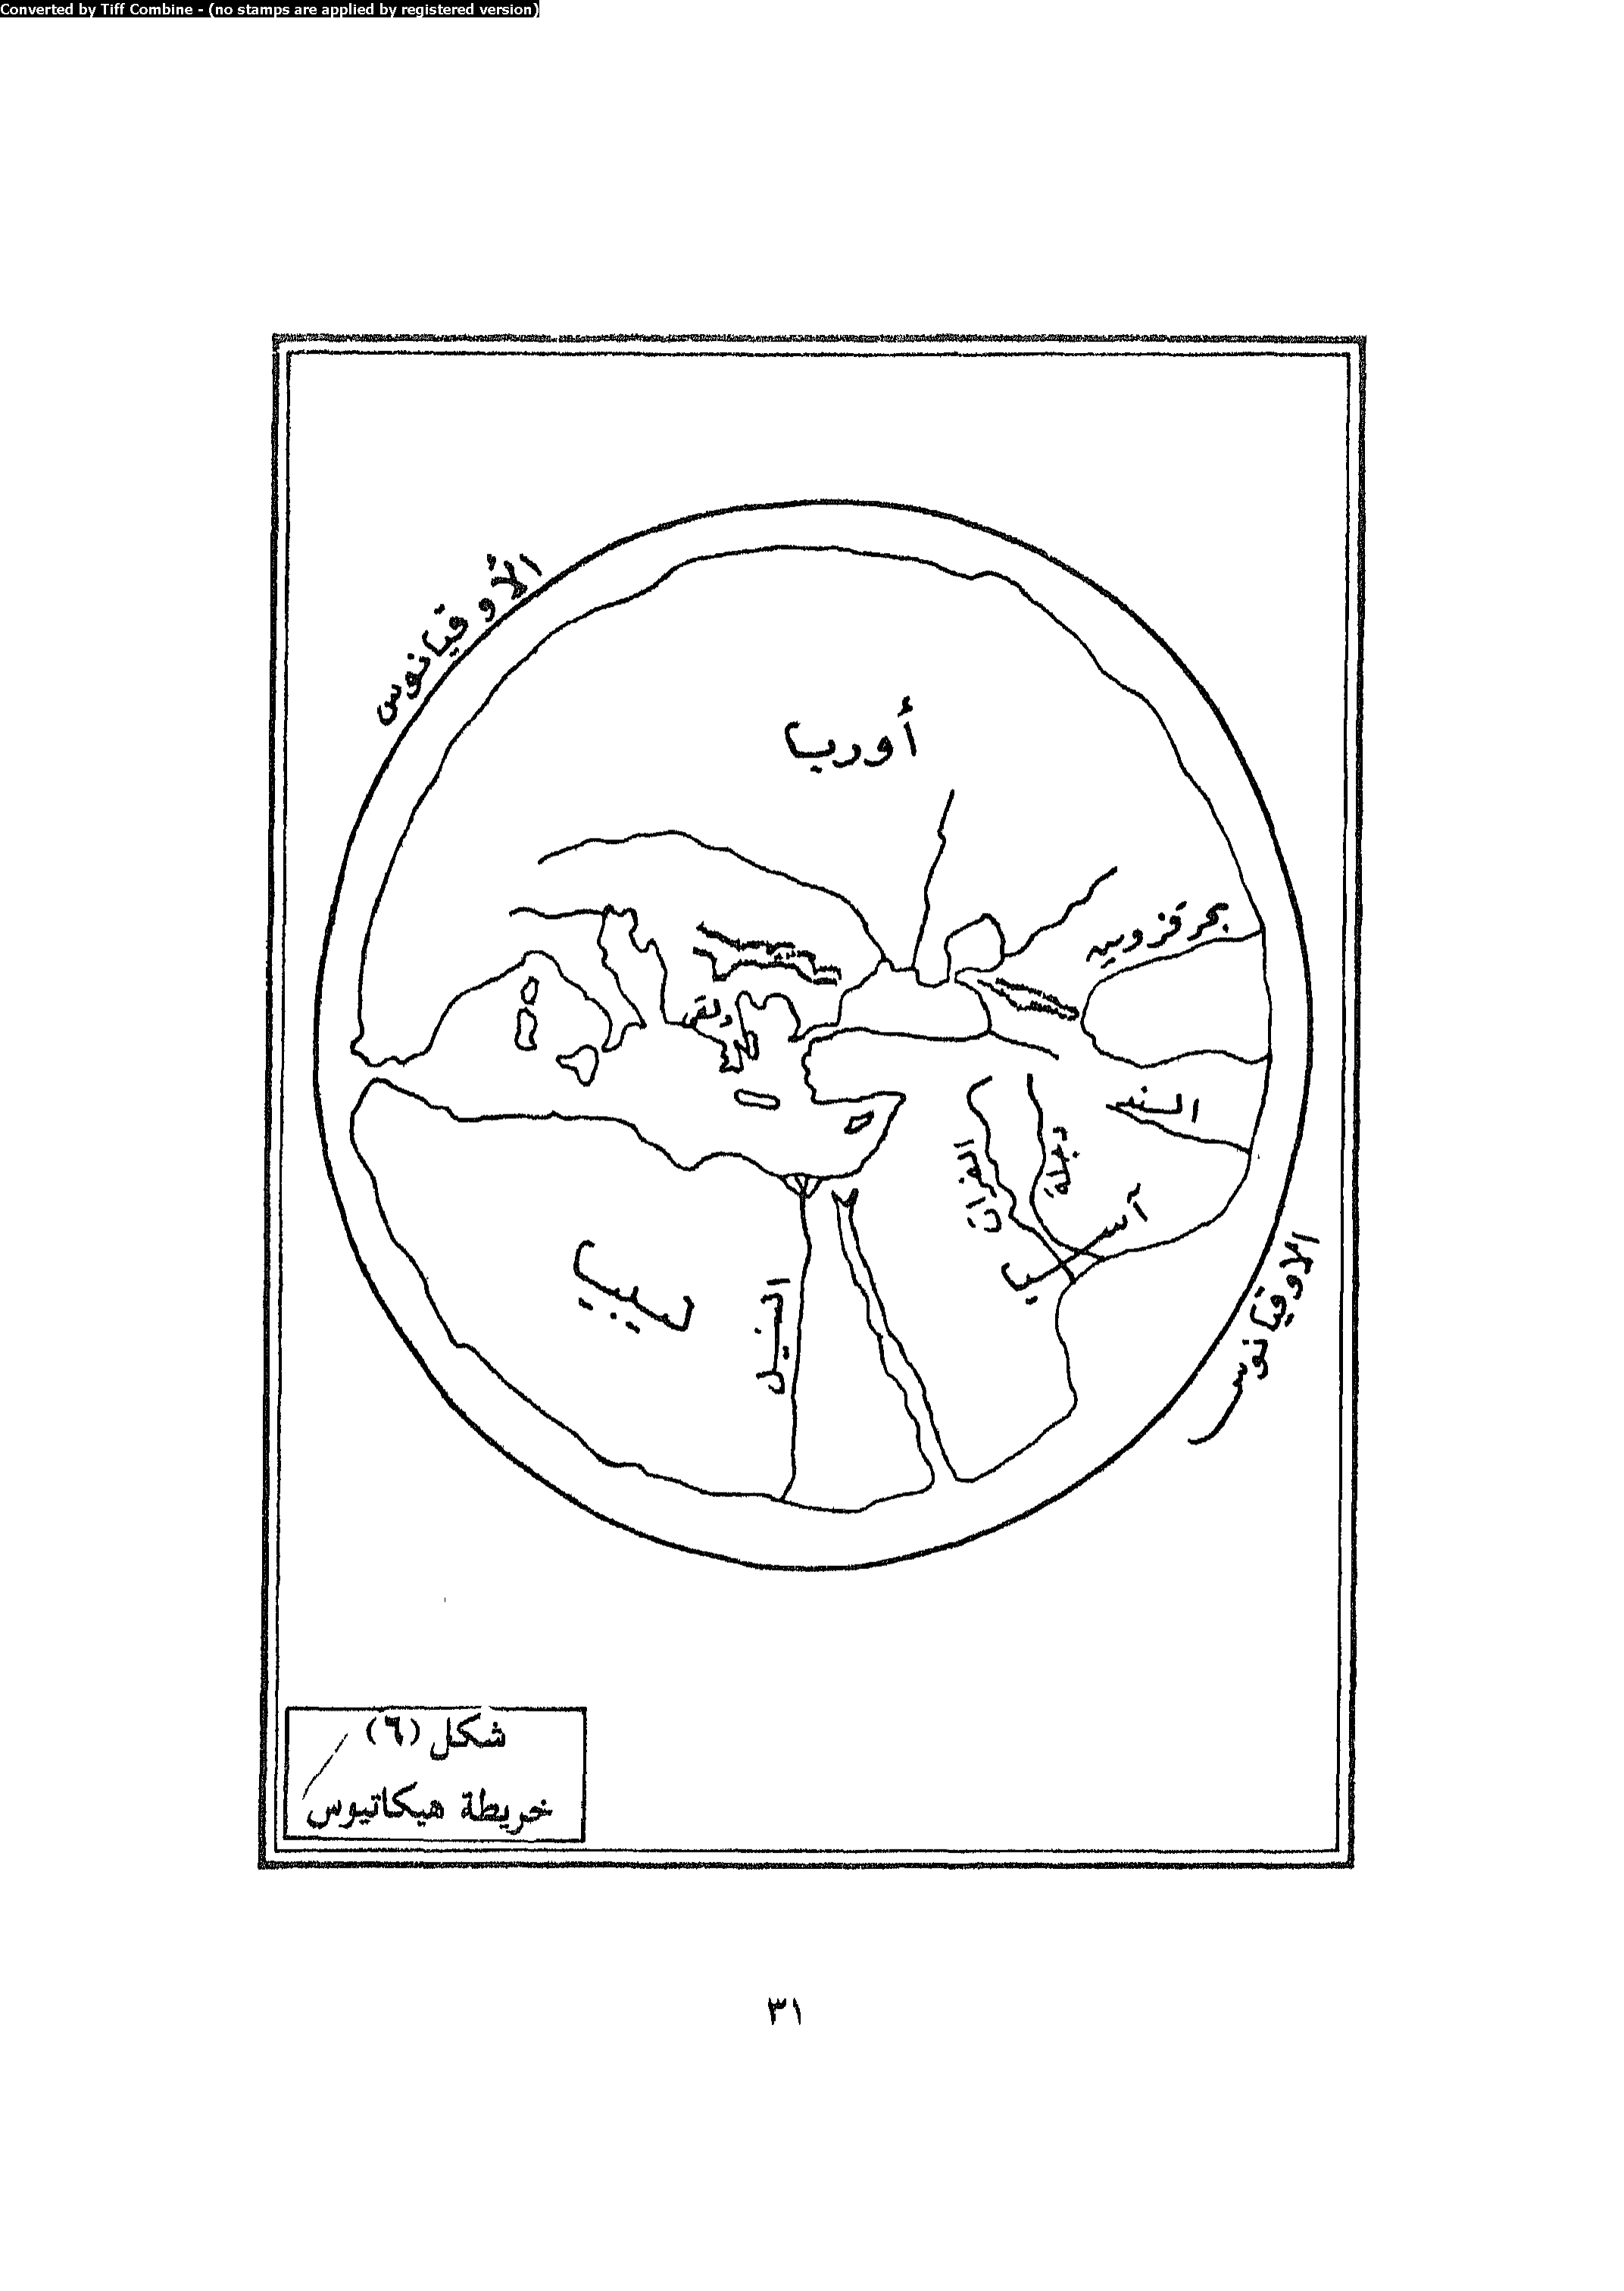 Converted by Tiff Combine - (no stamps are applied by registered version)
الأوقيانوس
أوربا
بحر قزوين
السند
دجلة
الفرات
آسيا
ليبيا
النيل
الاوقيانوس
شكل (٦)
خريطة هيكاتيوس
٣١